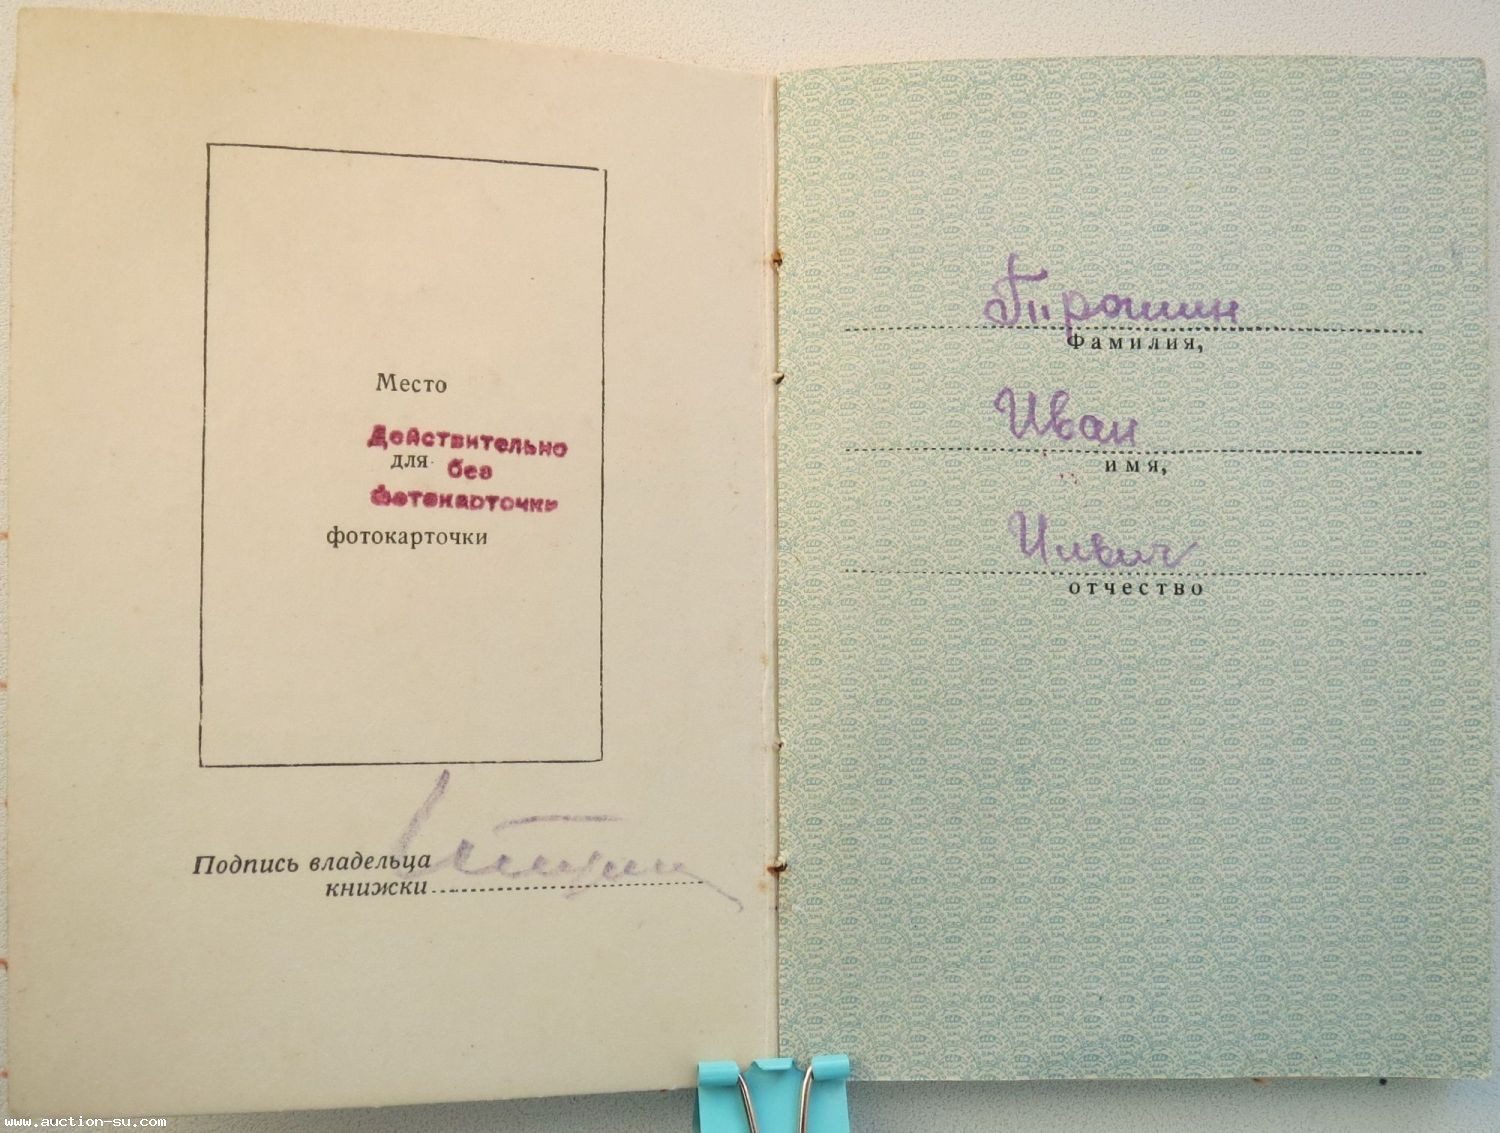 Место
Действительно
для без
фотокарточки
фотокарточки
Подпись владельца
книжки
Фамилия,
Иван
имя,
Ильич
отчество
www.auction-su.com